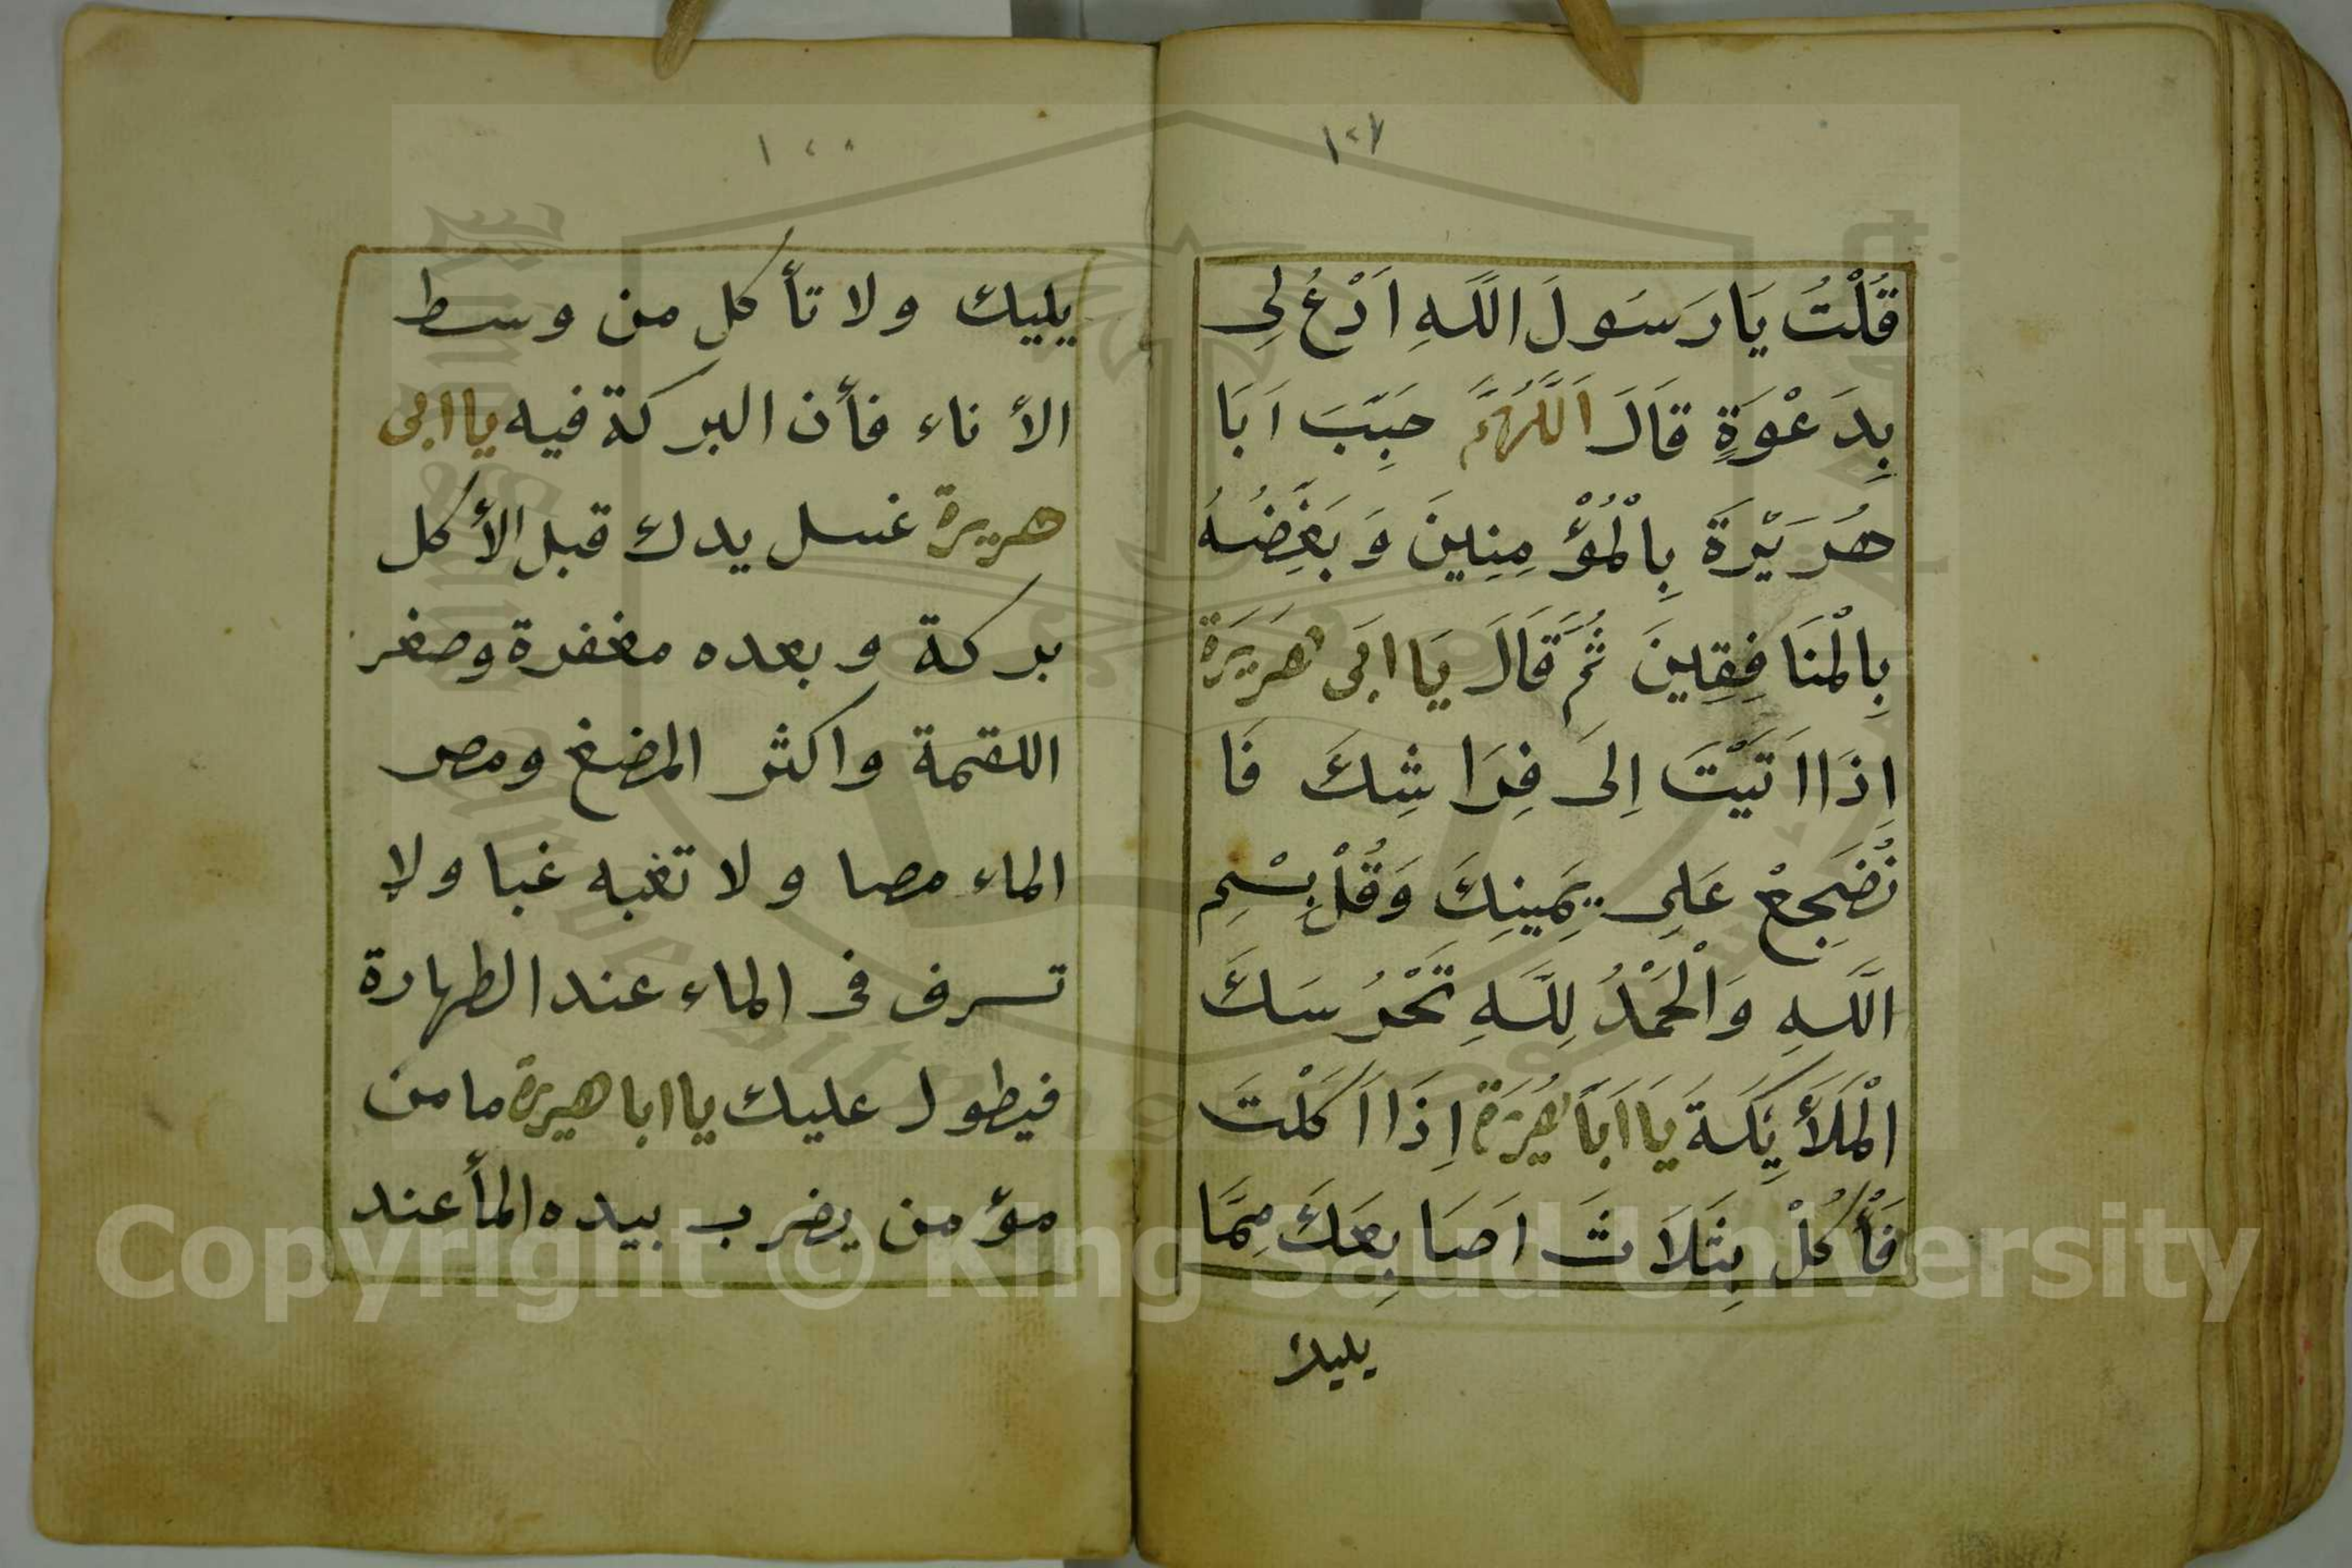 ١٢٧
قُلْتُ يَا رَسَولَ اللَّهِ اَدْعُ لِى
بِدَعْوَةٍ قَالَ اَللَّهُمَّ حَبِّبَ اَبَا
هُرَيْرَةَ بِالْمُؤْمِنِينَ وَبَغِّضُهُ
بِالْمنَافِقِينَ ثُمَّ قَالَ يَا ابَى هَرَيَرَة
اِذَا اَتَيْتَ اِلىَ فِرَاشِكَ فَا
نْضَجِعْ عَلِى يَمِينِكَ وَقُلْ بِسْمِ
اللَّهِ وَالْحَمْدُ لِلَّهِ تَحْرُسَكَ
الْمَلَأَيِكَةَ يَا اَبَا هُرَيْرَة اِذَا اَكَلْتَ
فَأْكُلْ بِثَلَاثَ اَصَابِعَكَ مِمَّا
يليك
١٢٨
يليك ولا تأكل من وسط
الأناء فأن البركة فيه يا ابى
هريرة غسل يدك قبل الأكل
بركة وبعده مغفرة وصغر
اللقمة واكثر المضغ ومص
الماء مصا ولا تغبه غبا ولا
تسرف فى الماء عند الطهارة
فيطول عليك يا ابا هيرة ما من
مؤمن يضرب بيده المأ عند
Copyright © King Saud University